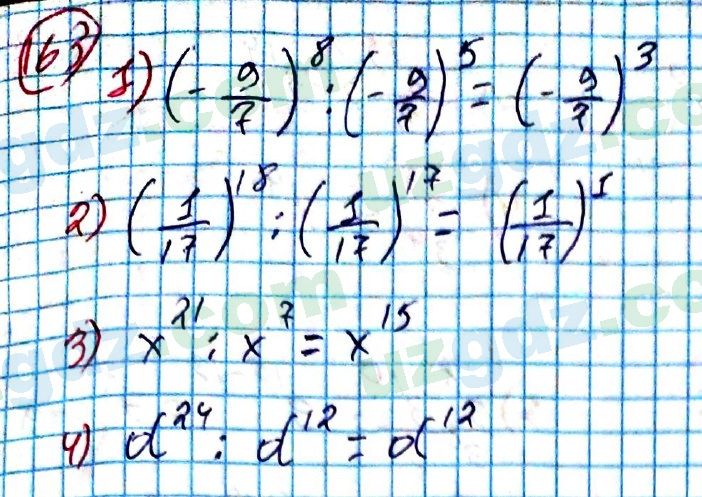 163
1) (- 9/7)^8 : (- 9/7)^5 = (- 9/7)^3
2) (1/17)^18 : (1/17)^17 = (1/17)^1
3) x^21 : x^7 = x^15
4) d^24 : d^12 = d^12
uzgdz.com